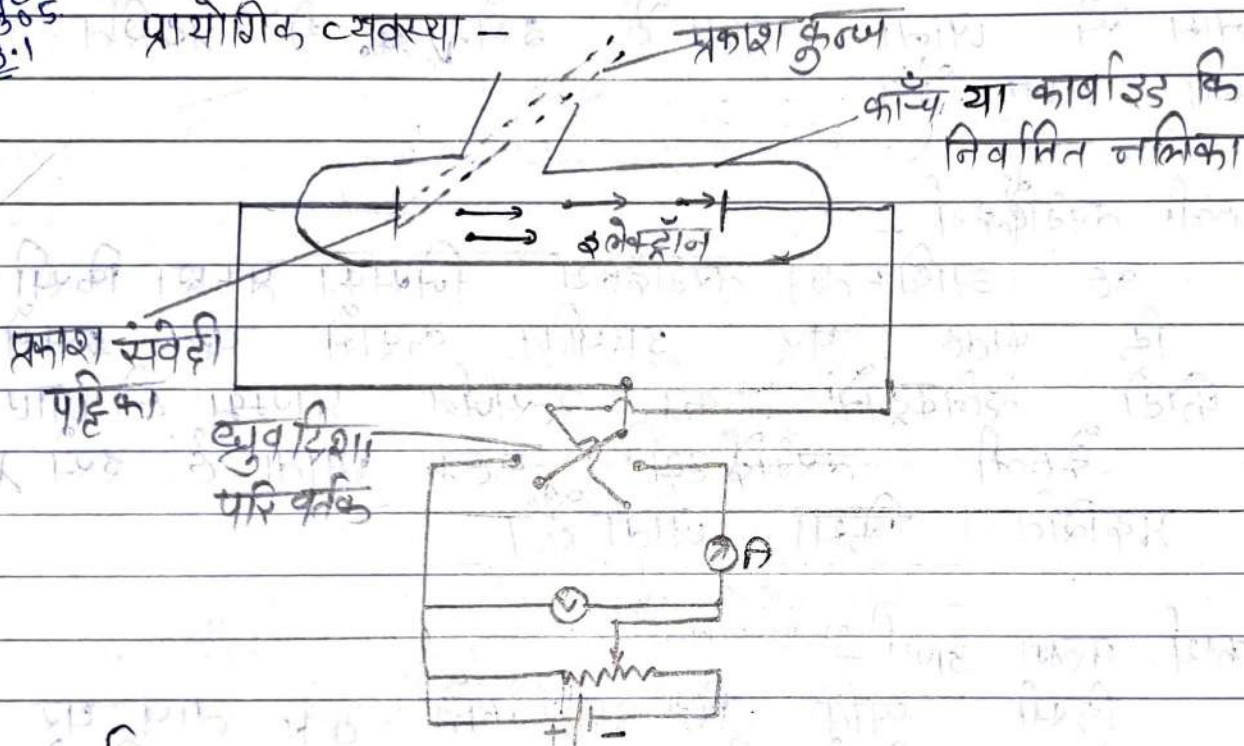 प्रायोगिक व्यवस्था –
प्रकाश कुन्ज
काँच या कार्बाइड कि
निर्वामित नलिका
इलेक्ट्रॉन
प्रकाश संवेदी
पट्टिका
ध्रुव दिशा
परिवर्तक
A
V
+ -